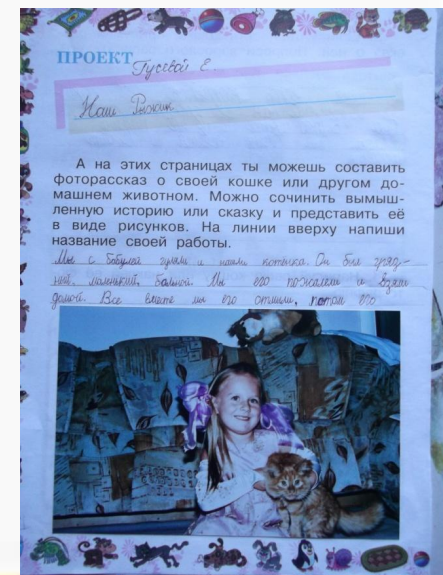 ПРОЕКТ Гусевой Е.
Наш Рыжик
А на этих страницах ты можешь составить
фоторассказ о своей кошке или другом до-
машнем животном. Можно сочинить вымыш-
ленную историю или сказку и представить её
в виде рисунков. На линии вверху напиши
название своей работы.
Мы с бабушкой гуляли и нашли котёнка. Он был гряз-
ный, маленький, больной. Мы его пожалели и взяли
домой. Все вместе мы его отмыли, потом его